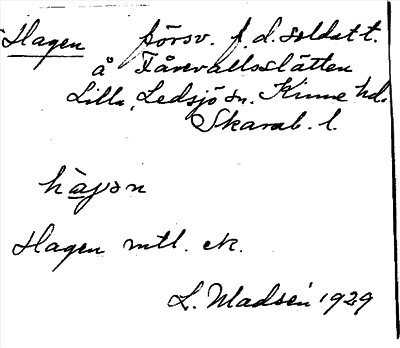 Hagen försv. f. d. soldatt.
å Fårevallsslätten
Lilla Ledsjö sn. Kinne hd.
Skarab. l.
hàgən
Hagen mtl. ek.
L. Madsén 1929